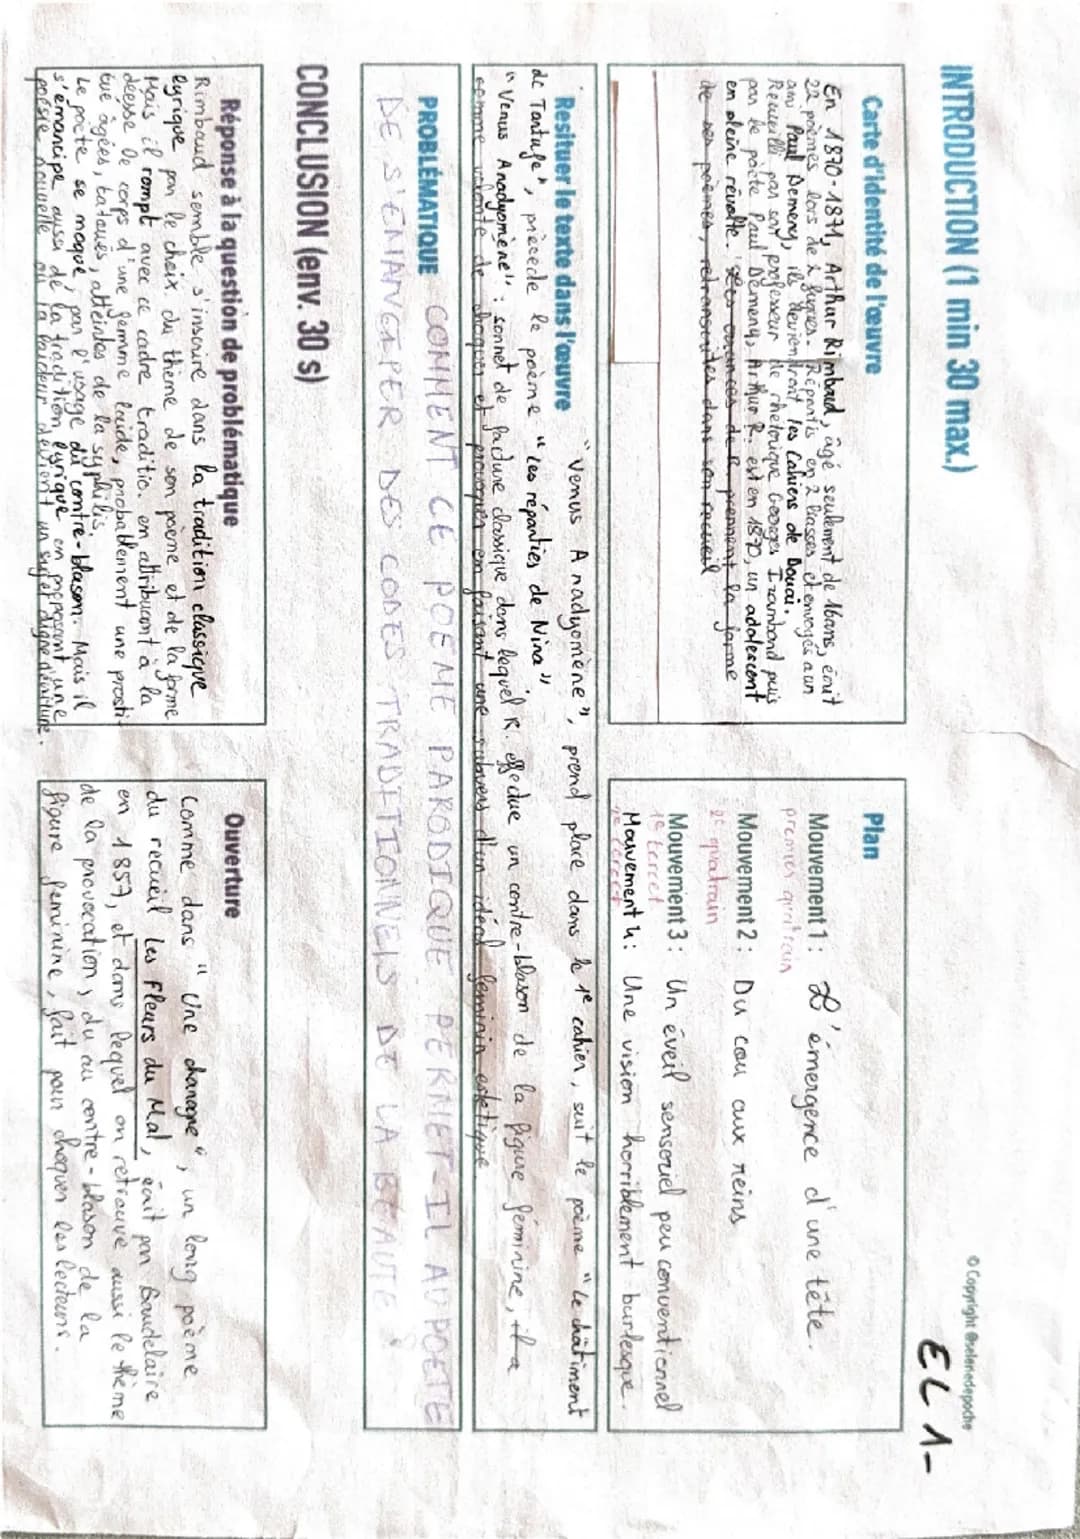 © Copyright @seleriedepoche
EL 1-
INTRODUCTION (1 min 30 max.)
Carte d'identité de l'œuvre
En 1870-1871, Arthur Rimbaud, âgé seulement de 16 ans, écrit
22 poèmes lors de 2 fugues. Répartis en 2 liasses et envoyés a un
ami Paul Demeny, ils deviendront les Cahiers de Douai.
Recueilli par son professeur de rhétorique Georges Izambard puis
par le poète Paul Demeny, Arthur R. est en 1870, un adolescent
en pleine révolte. Les errances de R. prennent la forme
de ses poèmes, retranscrites dans son recueil
Plan
Mouvement 1 : L'émergence d'une tête.
premier quatrain
Mouvement 2 : Du cou aux reins
2e quatrain
Mouvement 3 : Un éveil sensoriel peu conventionnel
1e tercet
Mouvement 4 : Une vision horriblement burlesque.
Resituer le texte dans l'œuvre "Venus Anadyomène", prend place dans le 1e cahier, suit le poème "Le châtiment
de Tartufe", précède le poème "Les réparties de Nina".
"Venus Anadyomène" : sonnet de facture classique dans lequel R. effectue un contre-blason de la figure féminine, il a
comme volonté de choquer et provoquer en faisant une d'un idéal féminin estétique.
PROBLÉMATIQUE COMMENT CE POEME PARODIQUE PERMET-IL AU POETE
DE S'EMANCIPER DES CODES TRADITIONNELS DE LA BEAUTE ?
CONCLUSION (env. 30 s)
Réponse à la question de problématique
Rimbaud semble s'inscrire dans la tradition classique
lyrique par le choix du thème de son poème et de la forme
Mais il rompt avec ce cadre traditio. en attribuant à la
déesse le corps d'une femme laide, probablement une prosti-
tué âgées, tatoués, atteintes de la syphilis.
Le poète se moque, par l'usage du contre-blason. Mais il
s'émancipe aussi de la tradition lyrique en proposant une
poésie nouvelle où la laideur devient un sujet digne d'écriture.
Ouverture
Comme dans "Une charogne", un long poème
du recueil Les Fleurs du Mal, écrit par Baudelaire
en 1857, et dans lequel on retrouve aussi le thème
de la provocation, du au contre-blason de la
figure feminine, fait pour choquer les lecteurs.